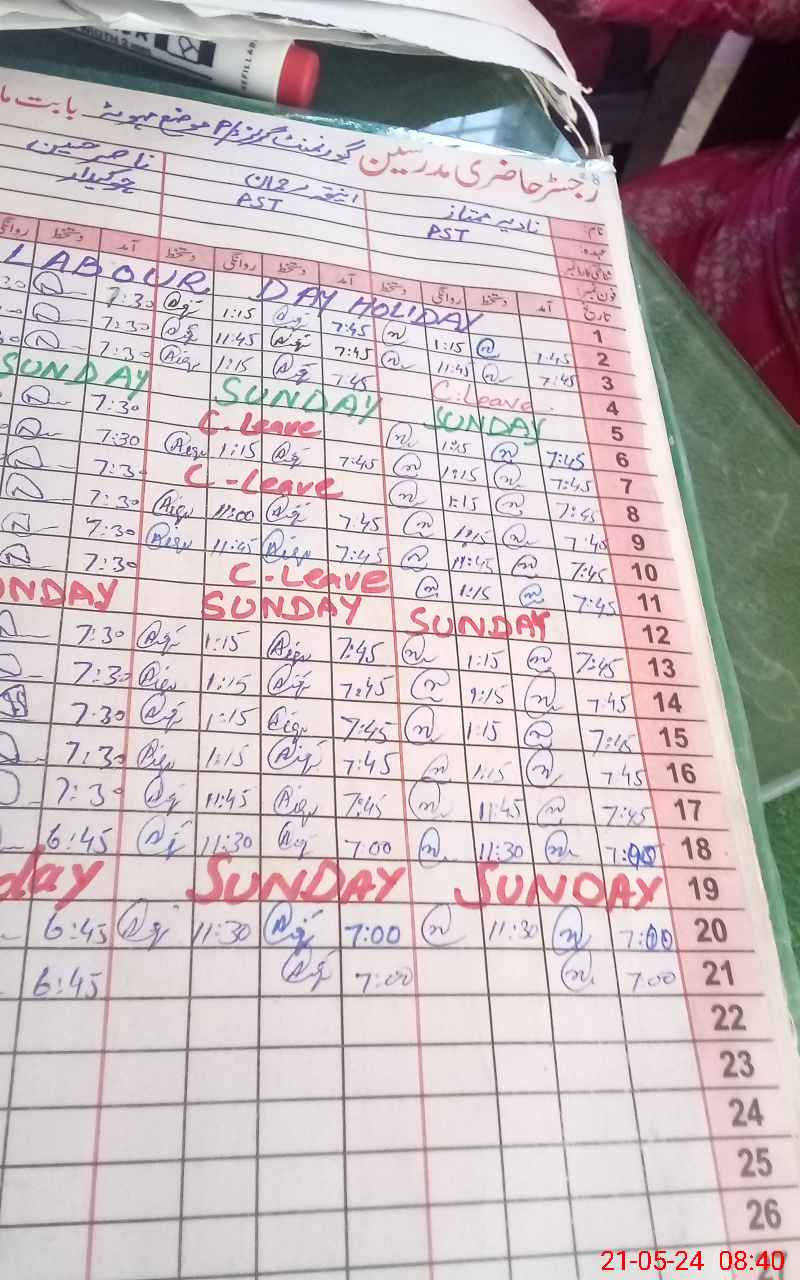 رجسٹر حاضری مدرسین گورنمنٹ گرلز P/S موضع بابت
نام: نادیہ ممتاز ناصر حسین
عہدہ: PST PST چوکیدار
تاریخ آمد دستخط روانگی دستخط آمد دستخط روانگی دستخط آمد دستخط روانگی
1 LABOUR DAY HOLIDAY
2 7:45 1:15 7:45 1:15 7:30
3 7:45 11:45 7:45 11:45 7:30
4 C.Leave 7:45 1:15 7:30
5 SUNDAY SUNDAY SUNDAY
6 7:45 1:15 C.Leave 7:30
7 7:45 1:15 7:45 1:15 7:30
8 7:45 1:15 C-Leave 7:30
9 7:45 1:15 7:45 11:00 7:30
10 7:45 11:45 7:45 11:45 7:30
11 7:45 1:15 C-Leave 7:30
12 SUNDAY SUNDAY NDAY
13 7:45 1:15 7:45 1:15 7:30
14 7:45 1:15 7:45 1:15 7:30
15 7:45 1:15 7:45 1:15 7:30
16 7:45 1:15 7:45 1:15 7:30
17 7:45 11:45 7:45 11:45 7:30
18 7:00 11:30 7:00 11:30 6:45
19 SUNDAY SUNDAY day
20 7:00 11:30 7:00 11:30 6:45
21 7:00 7:00 6:45
22
23
24
25
26
21-05-24 08:40